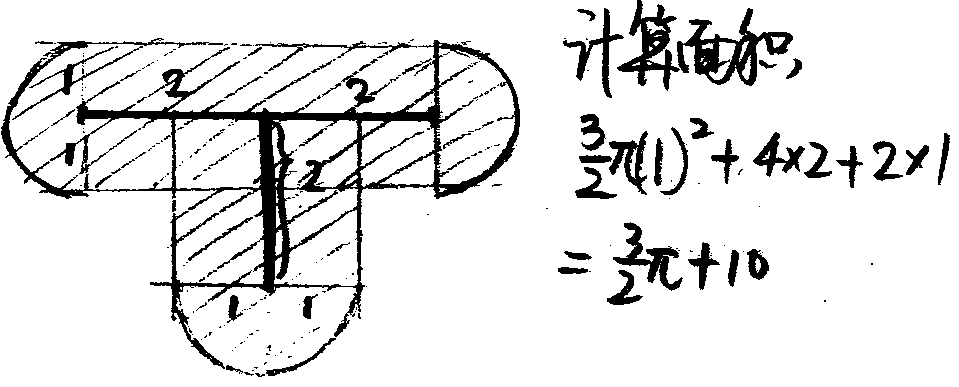 1
2
2
1
2
1 1
计算面积,
3/2 π(1)² + 4×2 + 2×1
= 3/2 π + 10